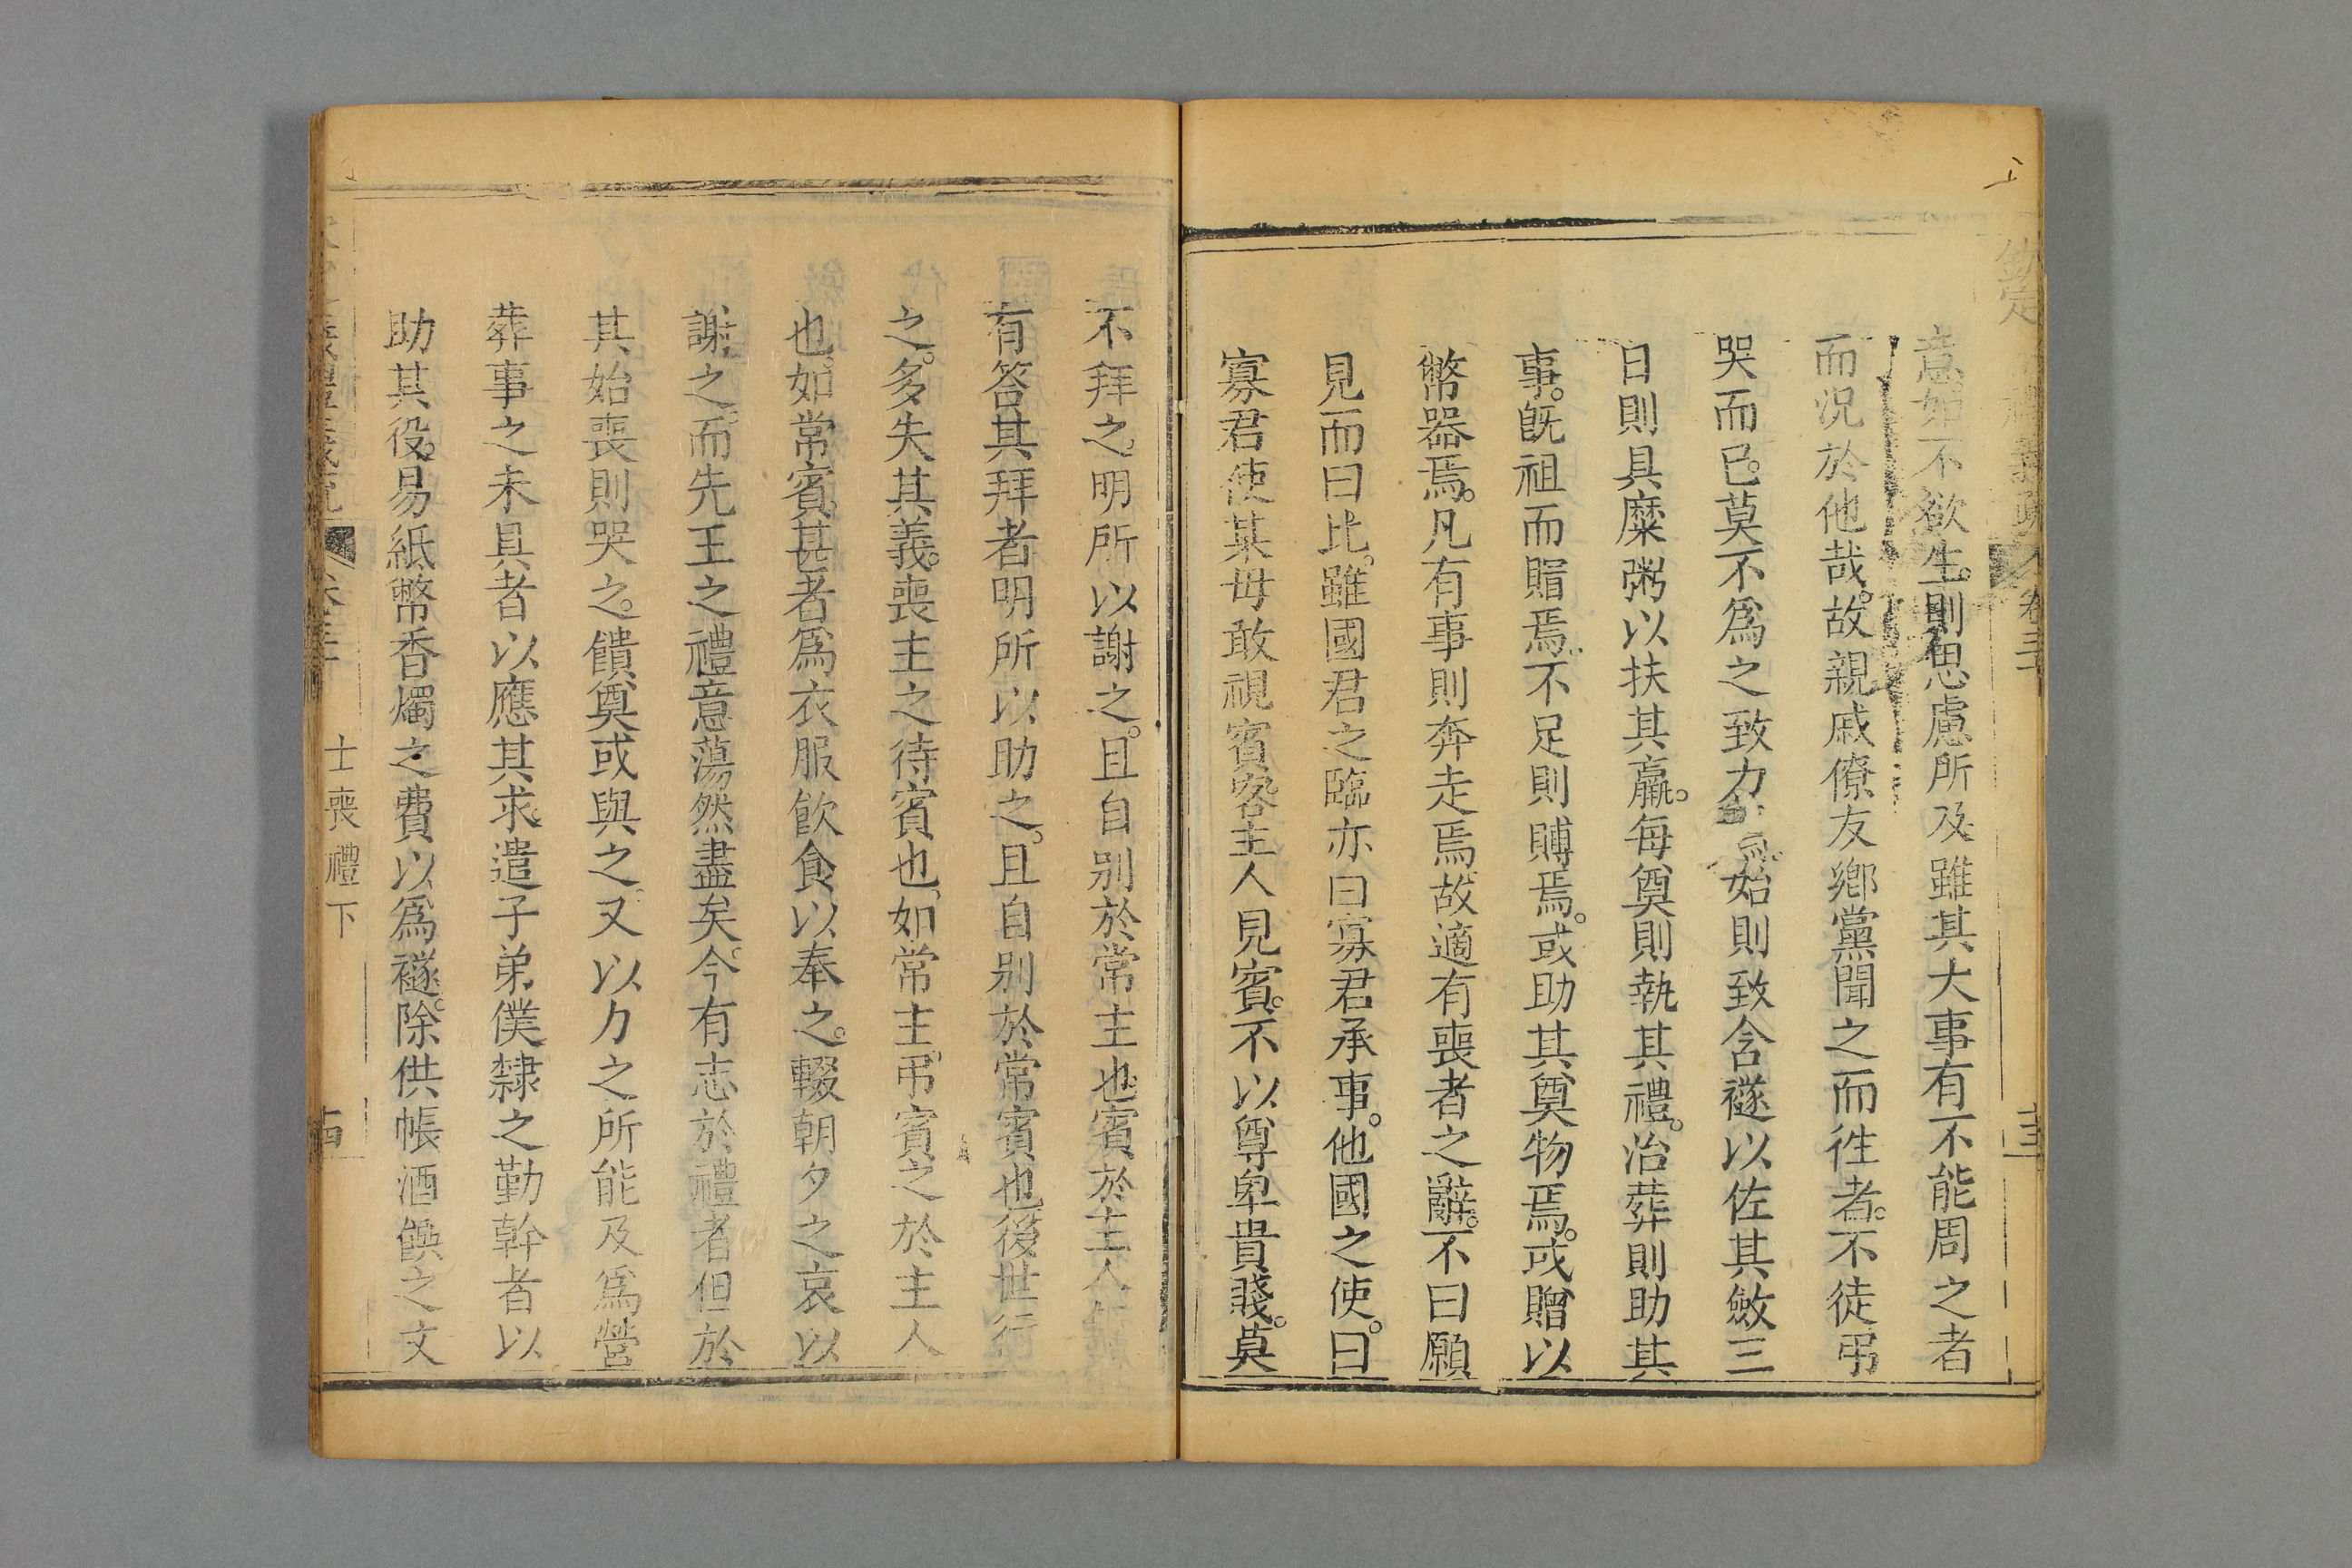 意如不欲生。則思慮所及雖其大事有不能周之者
而況於他哉。故親戚僚友鄉黨聞之而徃者。不徒弔
哭而已。莫不爲之致力焉。始則致含襚以佐其斂三
日則具糜粥以扶其羸。每奠則執其禮。治葬則助其
事。旣祖而賵焉。不足則賻焉。或助其奠物焉。或贈以
幣器焉。凡有事則奔走焉。故適有喪者之辭。不曰願
見而曰比。雖國君之臨亦曰寡君承事。他國之使。曰
寡君使某毋敢視賓客主人見賓。不以尊卑貴賤。莫
不拜之。明所以謝之。且自別於常主也賓於主人無
有答其拜者明所以助之。且自別於常賓也後世行
之。多失其義。喪主之待賓也如常主。弔賓之於主人
也如常賓。甚者爲衣服飲食以奉之。輟朝夕之哀以
謝之。而先王之禮意蕩然盡矣。今有志於禮者但於
其始喪則哭之。饋奠或與之。又以力之所能及爲營
葬事之未具者以應其求。遣子弟僕隸之勤幹者以
助其役。易紙幣香燭之費以爲襚。除供帳酒饌之文
士喪禮下